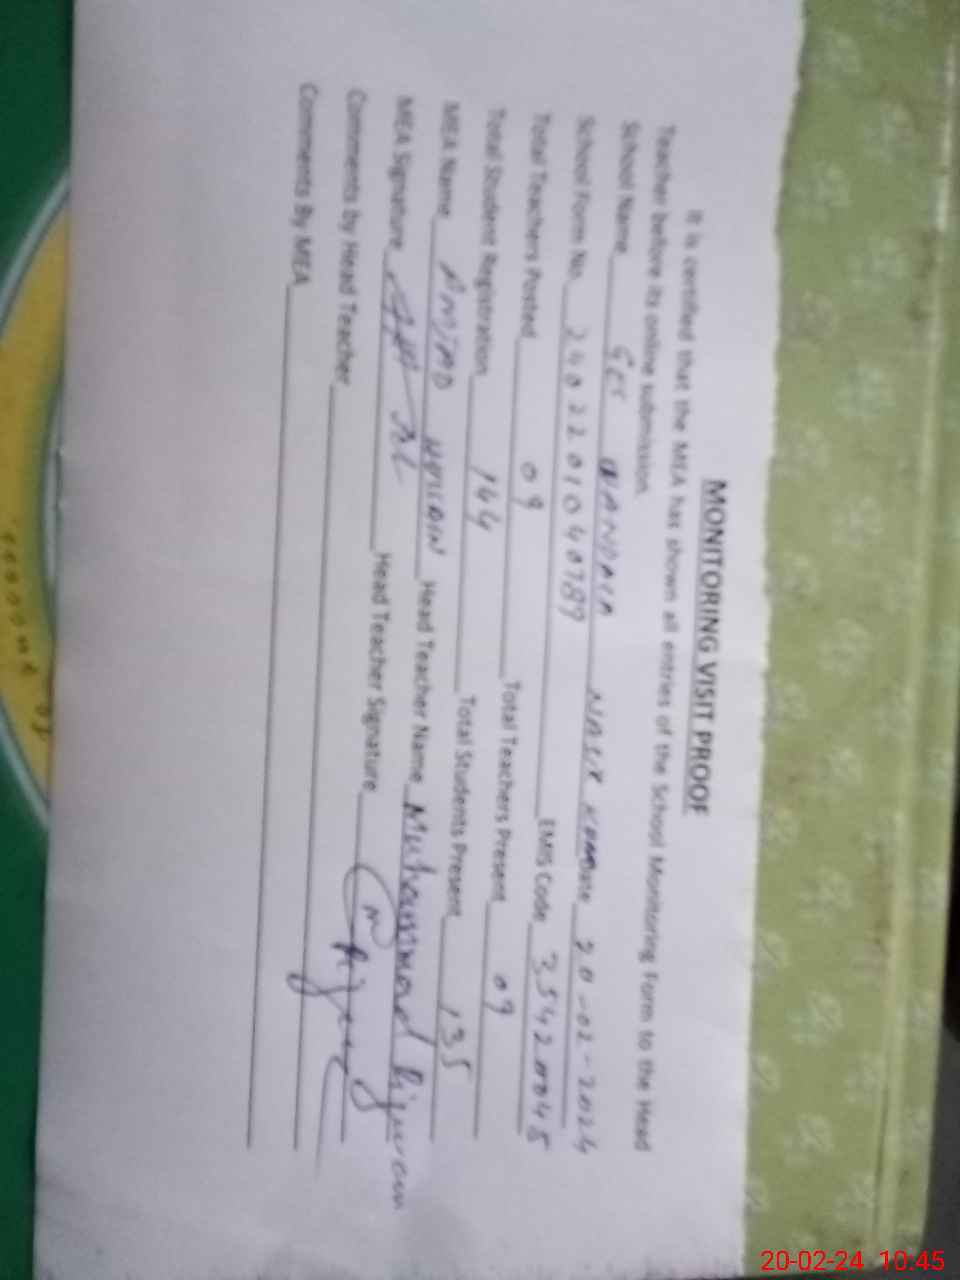 MONITORING VISIT PROOF
It is certified that the MEA has shown all entries of the School Monitoring Form to the Head
Teacher before its online submission.
School Name GES NASIR Date 20-02-2024
School Form No. 2402201040789 EMIS Code 35420045
Total Teachers Posted 09 Total Teachers Present 09
Total Student Registration 144 Total Students Present 135
MEA Name AMJAD HUSSAIN Head Teacher Name Muhammad
MEA Signature Head Teacher Signature
Comments by Head Teacher
Comments By MEA
20-02-24 10:45